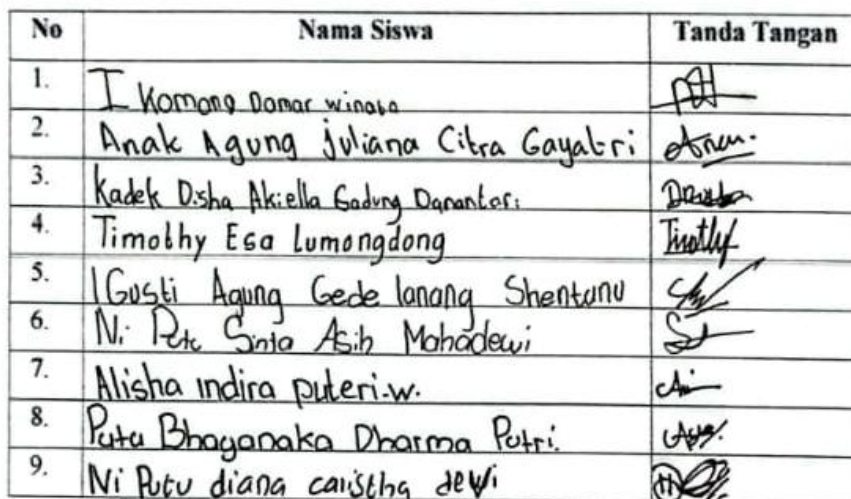 No Nama Siswa Tanda Tangan
1. I Komang Damar winata
2. Anak Agung juliana Citra Gayatri
3. Kadek Disha Akiella Gadung Danantari
4. Timothy Esa lumongdong Timothy
5. I Gusti Agung Gede lanang Shentanu
6. Ni Putu Sinta Asih Mahadewi
7. Alisha indira puteri.w.
8. Putu Bhaganaka Dharma Putri.
9. Ni Putu diana calistha dewi